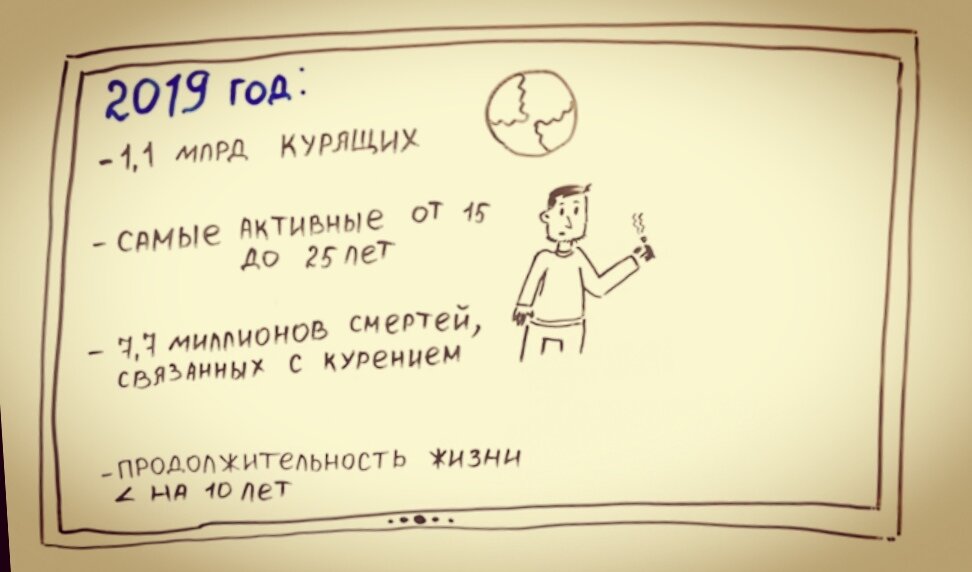 2019 год:
- 1,1 млрд курящих
- самые активные от 15
до 25 лет
- 7,7 миллионов смертей,
связанных с курением
- продолжительность жизни
< на 10 лет